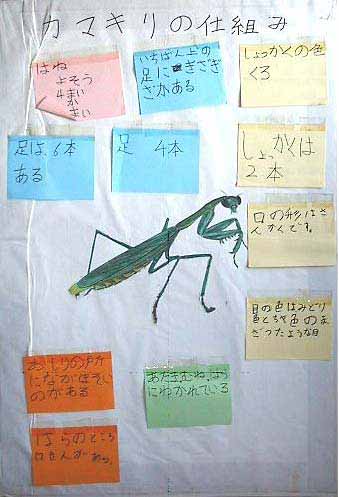 カマキリの仕組み
はね
よそう
4まい
か
まい
いちばん上の
足にぎざぎ
ざがある
しょっかくの色
くろ
足は、6本
ある
足 4本
しょっかくは
2本
口の形はさ
んかくです。
目の色はみどり
色とちゃ色のま
ざったような目
おしりの
になが ほそい
のがある
あたま、むね、はら
にわかれている
はらのところ